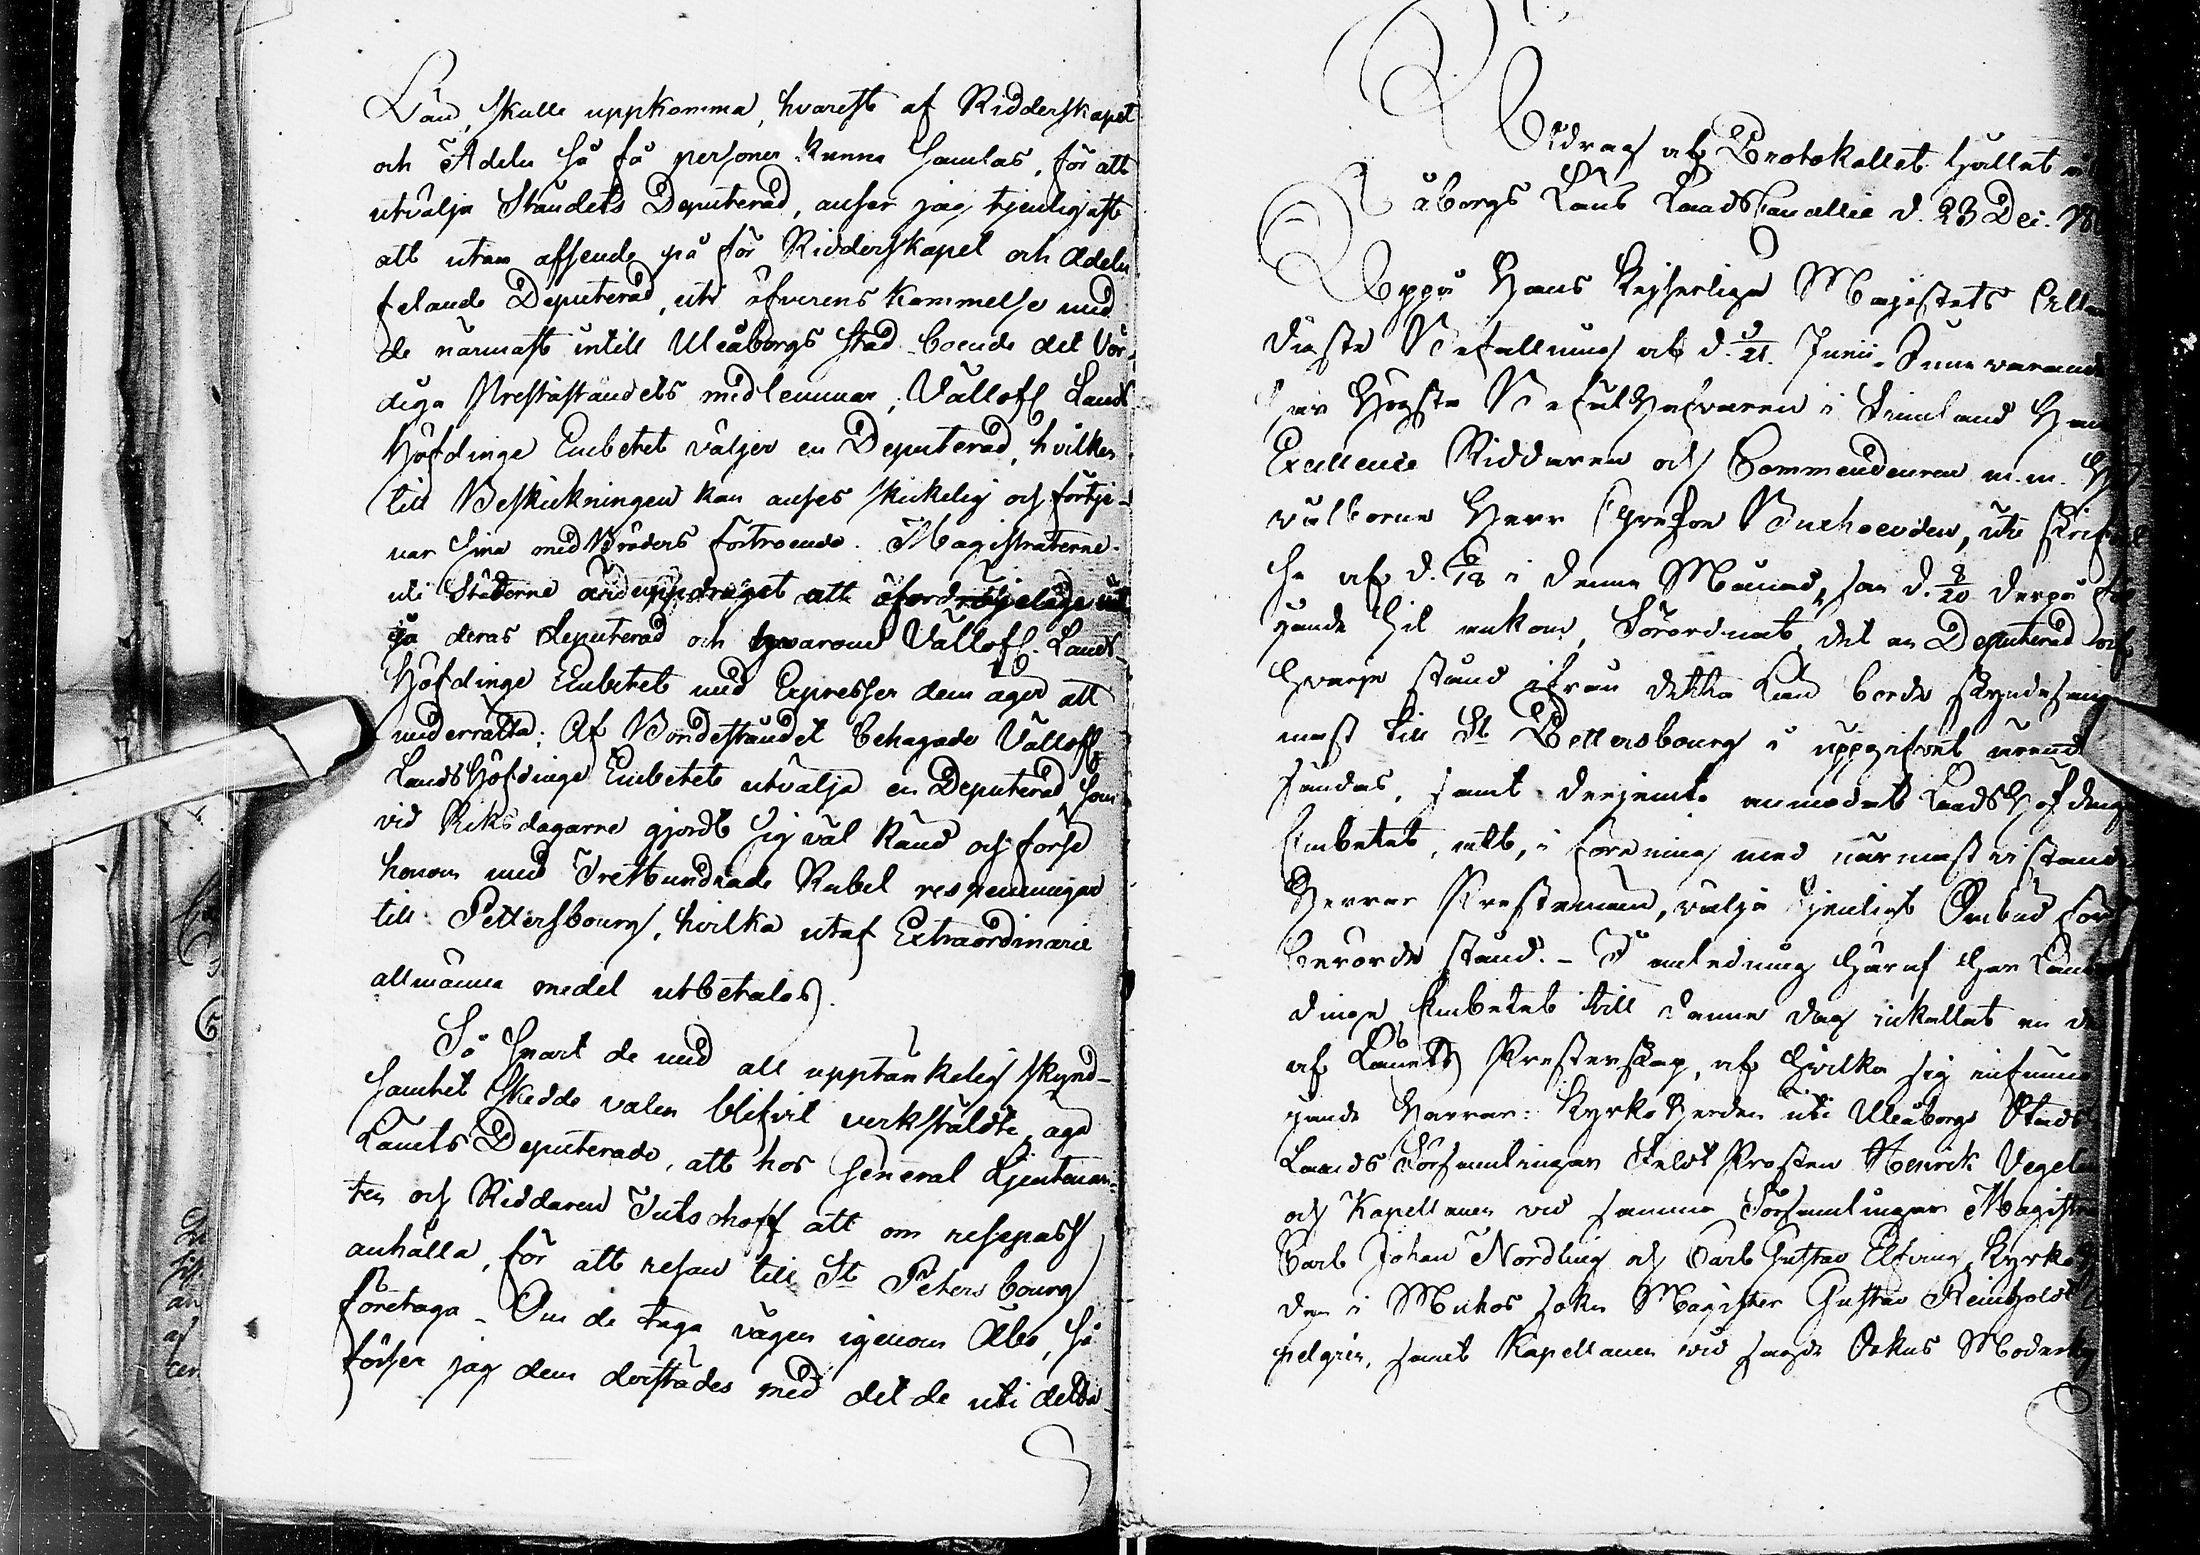 Län, skulle uppkomma, hvarest af Ridderskapet
och Adeln så få personer kunna samlas, för att
utvälja Ståndets Deputerad, anser jag tjenligast
att utan afseende på för Ridderskapet och Adeln
felande Deputerad, uti öfverens kommelse med
de närmast intill Uleåborgs stad boende det Vör-
diga Presteståndets medlemmar, Vällofl Lands
Höfdinge Embetet väljer en Deputerad, hvilken
till Beskickningen kan anses skickelig och förtje-
nar sina med Bröders förtroende. Magistraterne
uti Städerne uppdraget att ofördröjeligen
deras Deputerad och hvarom Vällofl. Lands
Höfdinge Embetet med Expresser dem äger att
underrätta; Af Bondeståndet behagade Vällofl
Lands Höfdinge Embetet utvälja en Deputerad, som
vid Riksdagarne gjordt sig väl känd och förse
honom med Trehundrade Rubel respenningar
till Pettersbourg, hvilka utaf Extraordinarie
allmänna medel utbetalas.
Så snart de med all upptänkelig skynd-
samhet skedde valen blifvit verkstäldte, äga
Länets Deputerade, att hos General Lieutenan-
ten och Riddaren Tutschoff att om resepass
anhålla, för att resan till St Petersbourg
företaga - Om de taga vägen igenom Åbo, så
förser jag dem derstädes med det de uti detta
Utdrag af Protokollet hållet å
Uleåborgs Läns LandsCancellie d. 23 Dec. 18
Uppå Hans Kejserliga Majestets Aller
digste Befallning af d. 9/21. Junii innevarande
har Högste Befälhafvaren i Finland Hans
Excellence Riddaren och Commendeuren m. m. Hög
välborne Herr Grefve Buxhoevden, uti skrifvel
se af d. 6/18 i denne Månad, som d. 8/20 derpå föl
gande hit ankom, Förordnat det en Deputerad af
hvarje stånd ifrån detta Län borde skyndesam
mast till St Pettersbourg i uppgifvet ärende
sändas, samt derjemte anmodat LandsHöfdinge
Embetet, att, i förening med närmast vistande
Herrar Prestemän, välja tjenligt Ombud för
berörde stånd. - I anledning häraf har Lands
dinge Embetet till denne dag inkallat en del
af Länets Presterskap, af hvilka sig infunno
gande Herrar: KyrkoHerden uti Uleåborgs Stads
Lands Församlingar Feldt Prosten Henrik Vegel
och Kapellanen vid samma Församlingar Magist
Carl Johan Nordling och Carl Gustav Elfving, Kyrko
den i Muhos sokn Magister Gustav Reinhold
pelgrén, samt Kapellanen vid samma Sokns Moderky